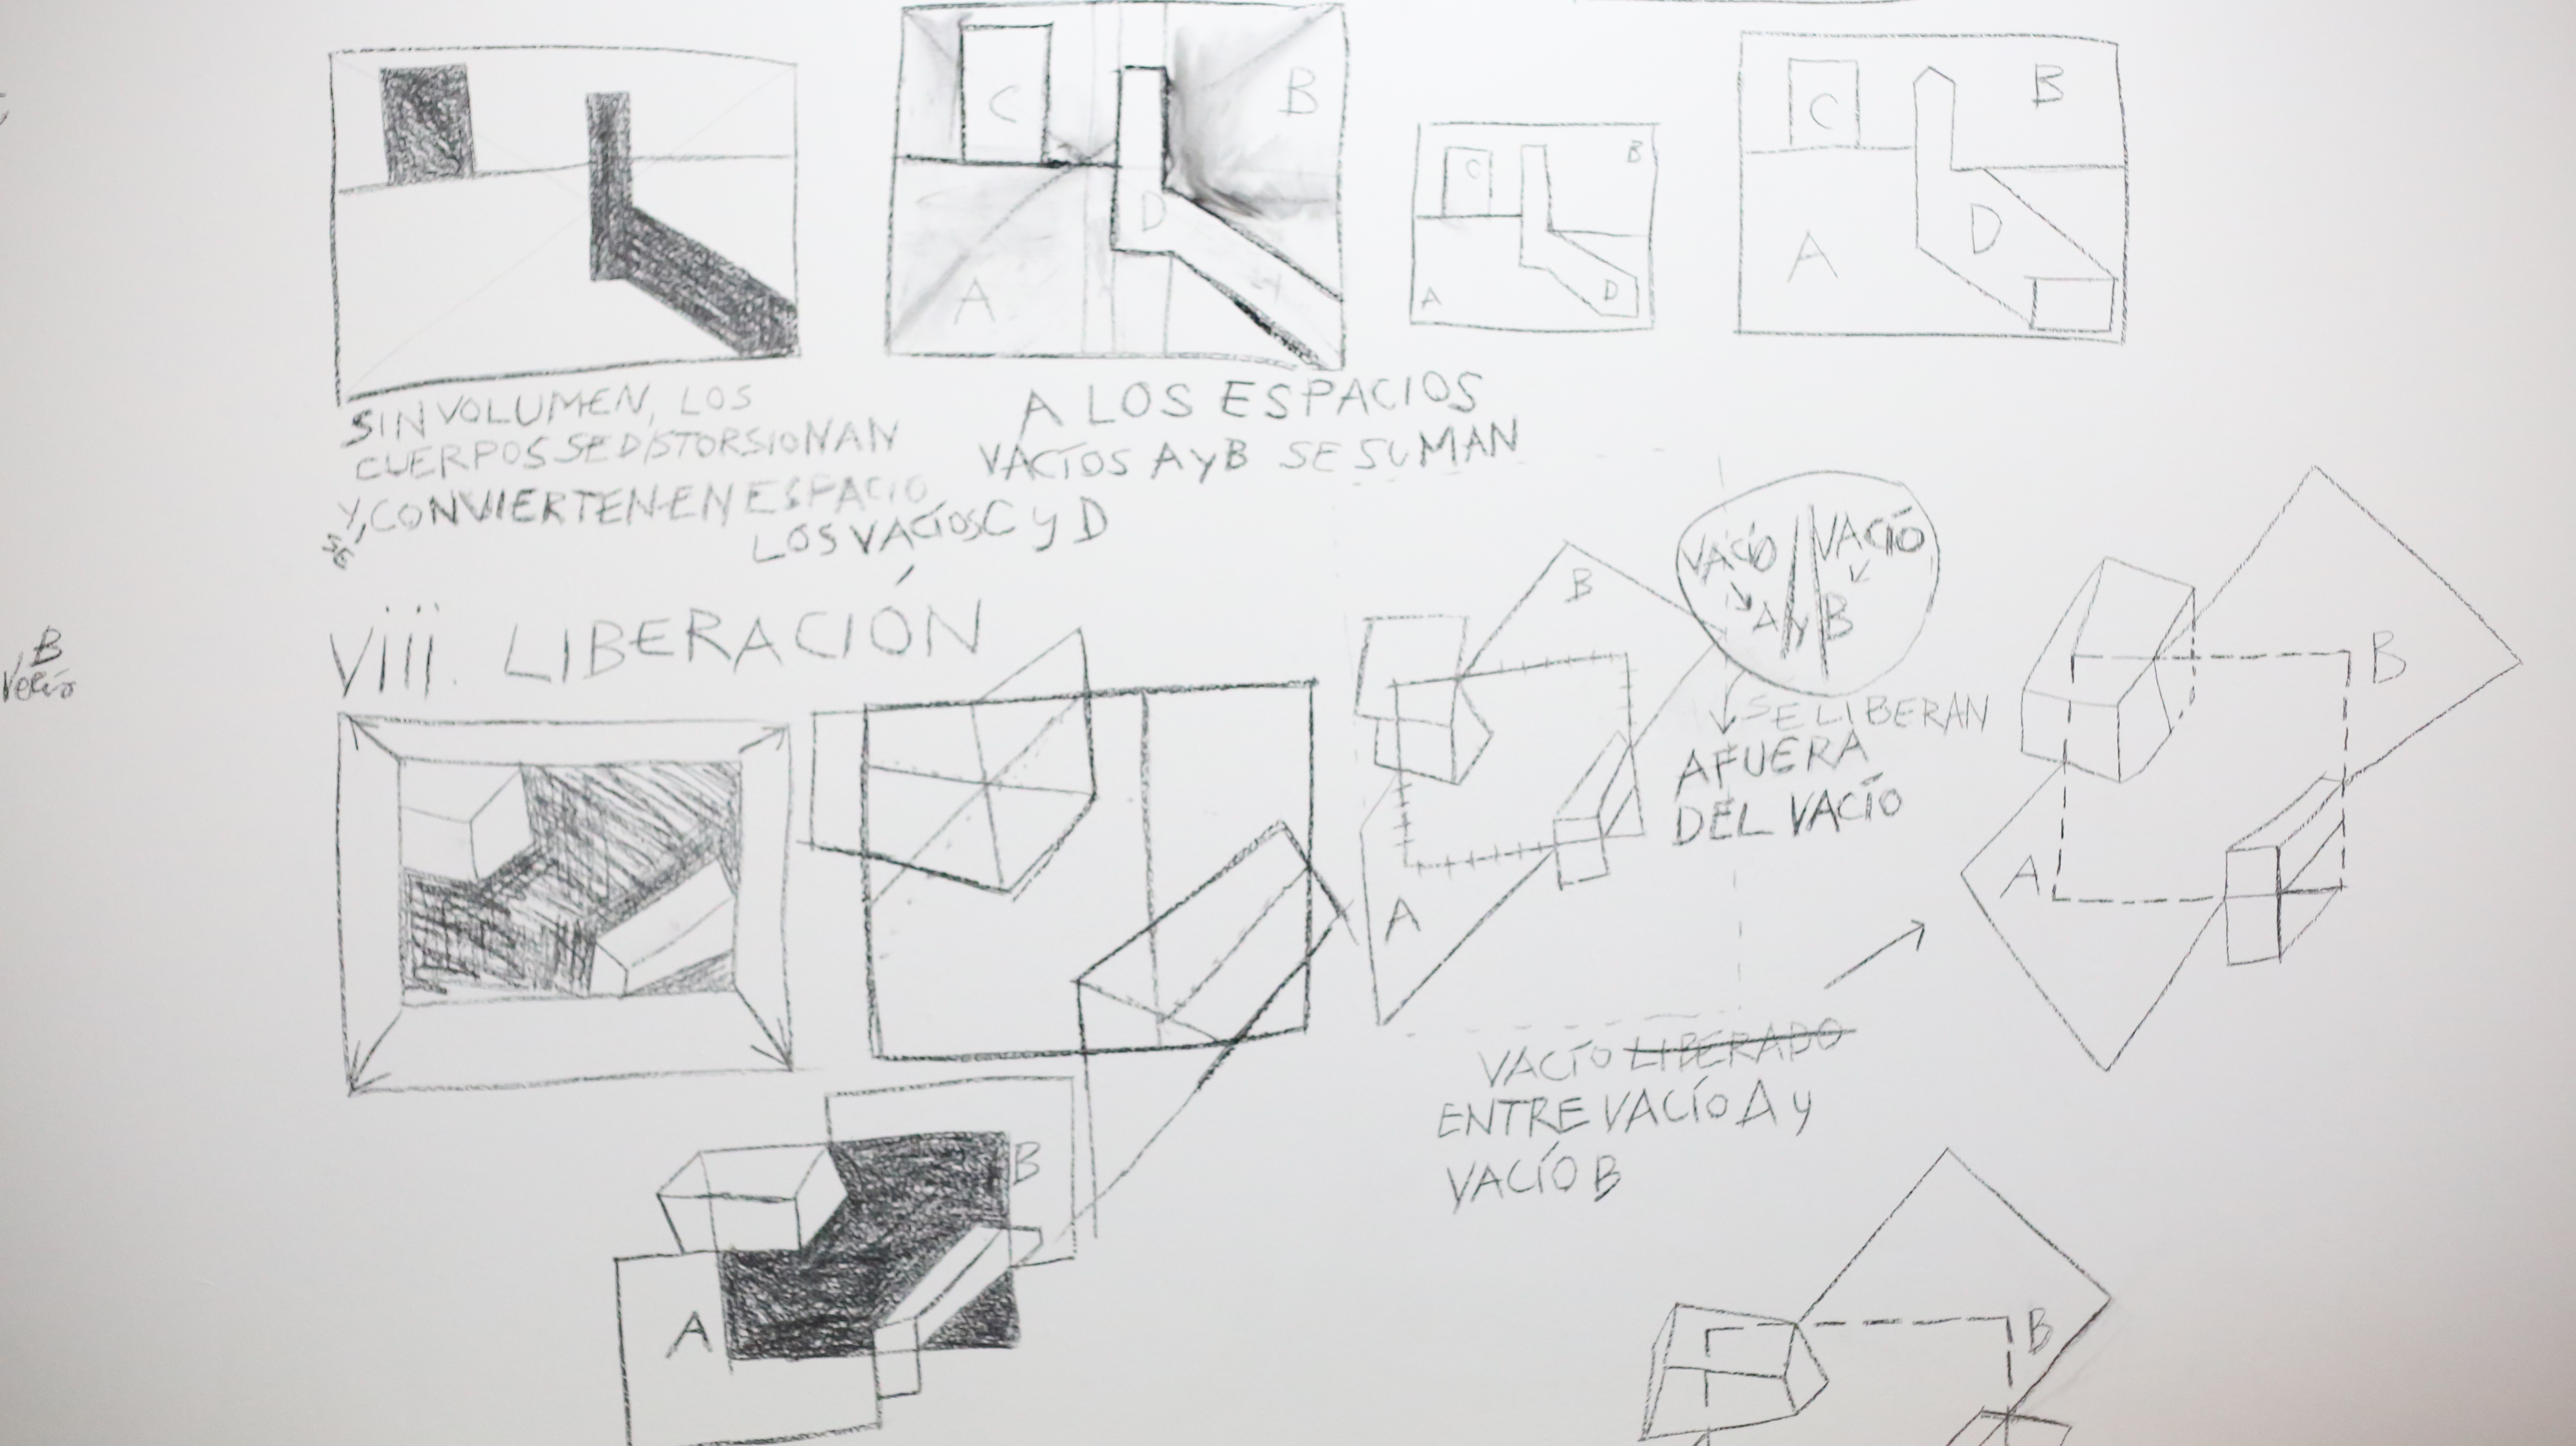 C
B
D
A
C
B
A
D
C
B
A
D
SIN VOLUMEN, LOS
CUERPOS SE DISTORSIONAN
Y, CONVIERTEN EN ESPACIO
SE
A LOS ESPACIOS
VACÍOS A Y B SE SUMAN
LOS VACÍOS C Y D
B
Viii. LIBERACIÓN
B
A
VACÍO VACÍO
A Y B
SE LIBERAN
AFUERA
DEL VACÍO
B
A
VACÍO LIBERADO
ENTRE VACÍO A Y
VACÍO B
B
A
B